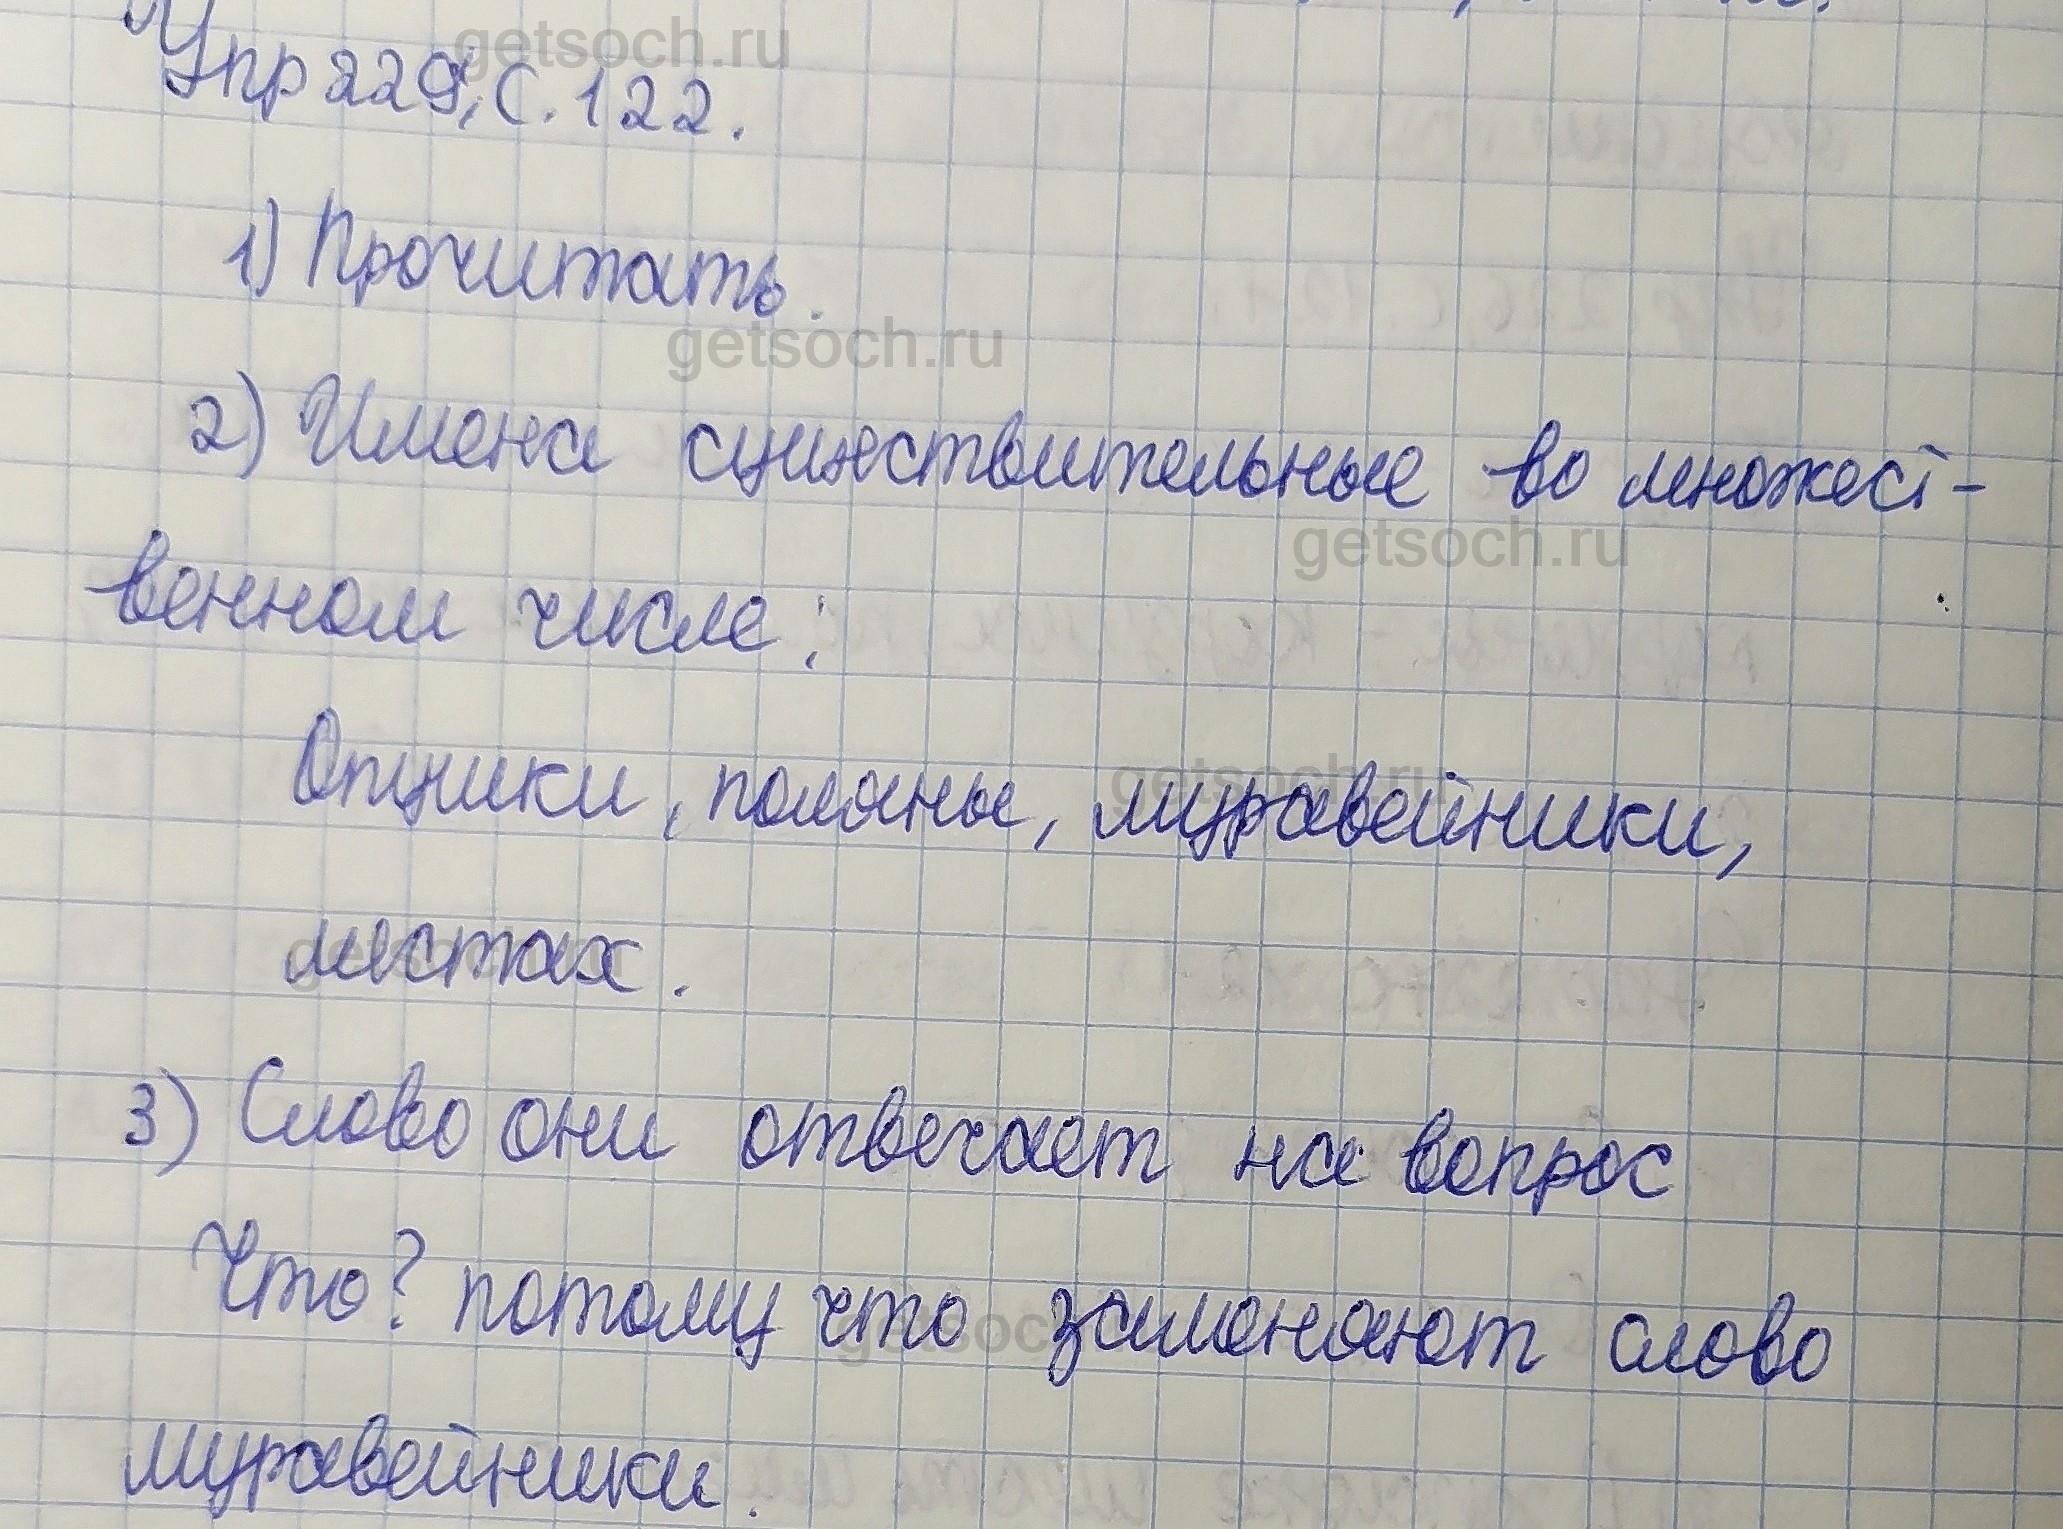 Упр 229, с. 122.
1) Прочитать.
2) Имена существительные во множест-
венном числе:
Опушки, поляны, муравейники,
местах.
3) Слово они отвечает на вопрос
Что? потому что заменяют слово
муравейники.
getsoch.ru
getsoch.ru
getsoch.ru
getsoch.ru
getsoch.ru
getsoch.ru